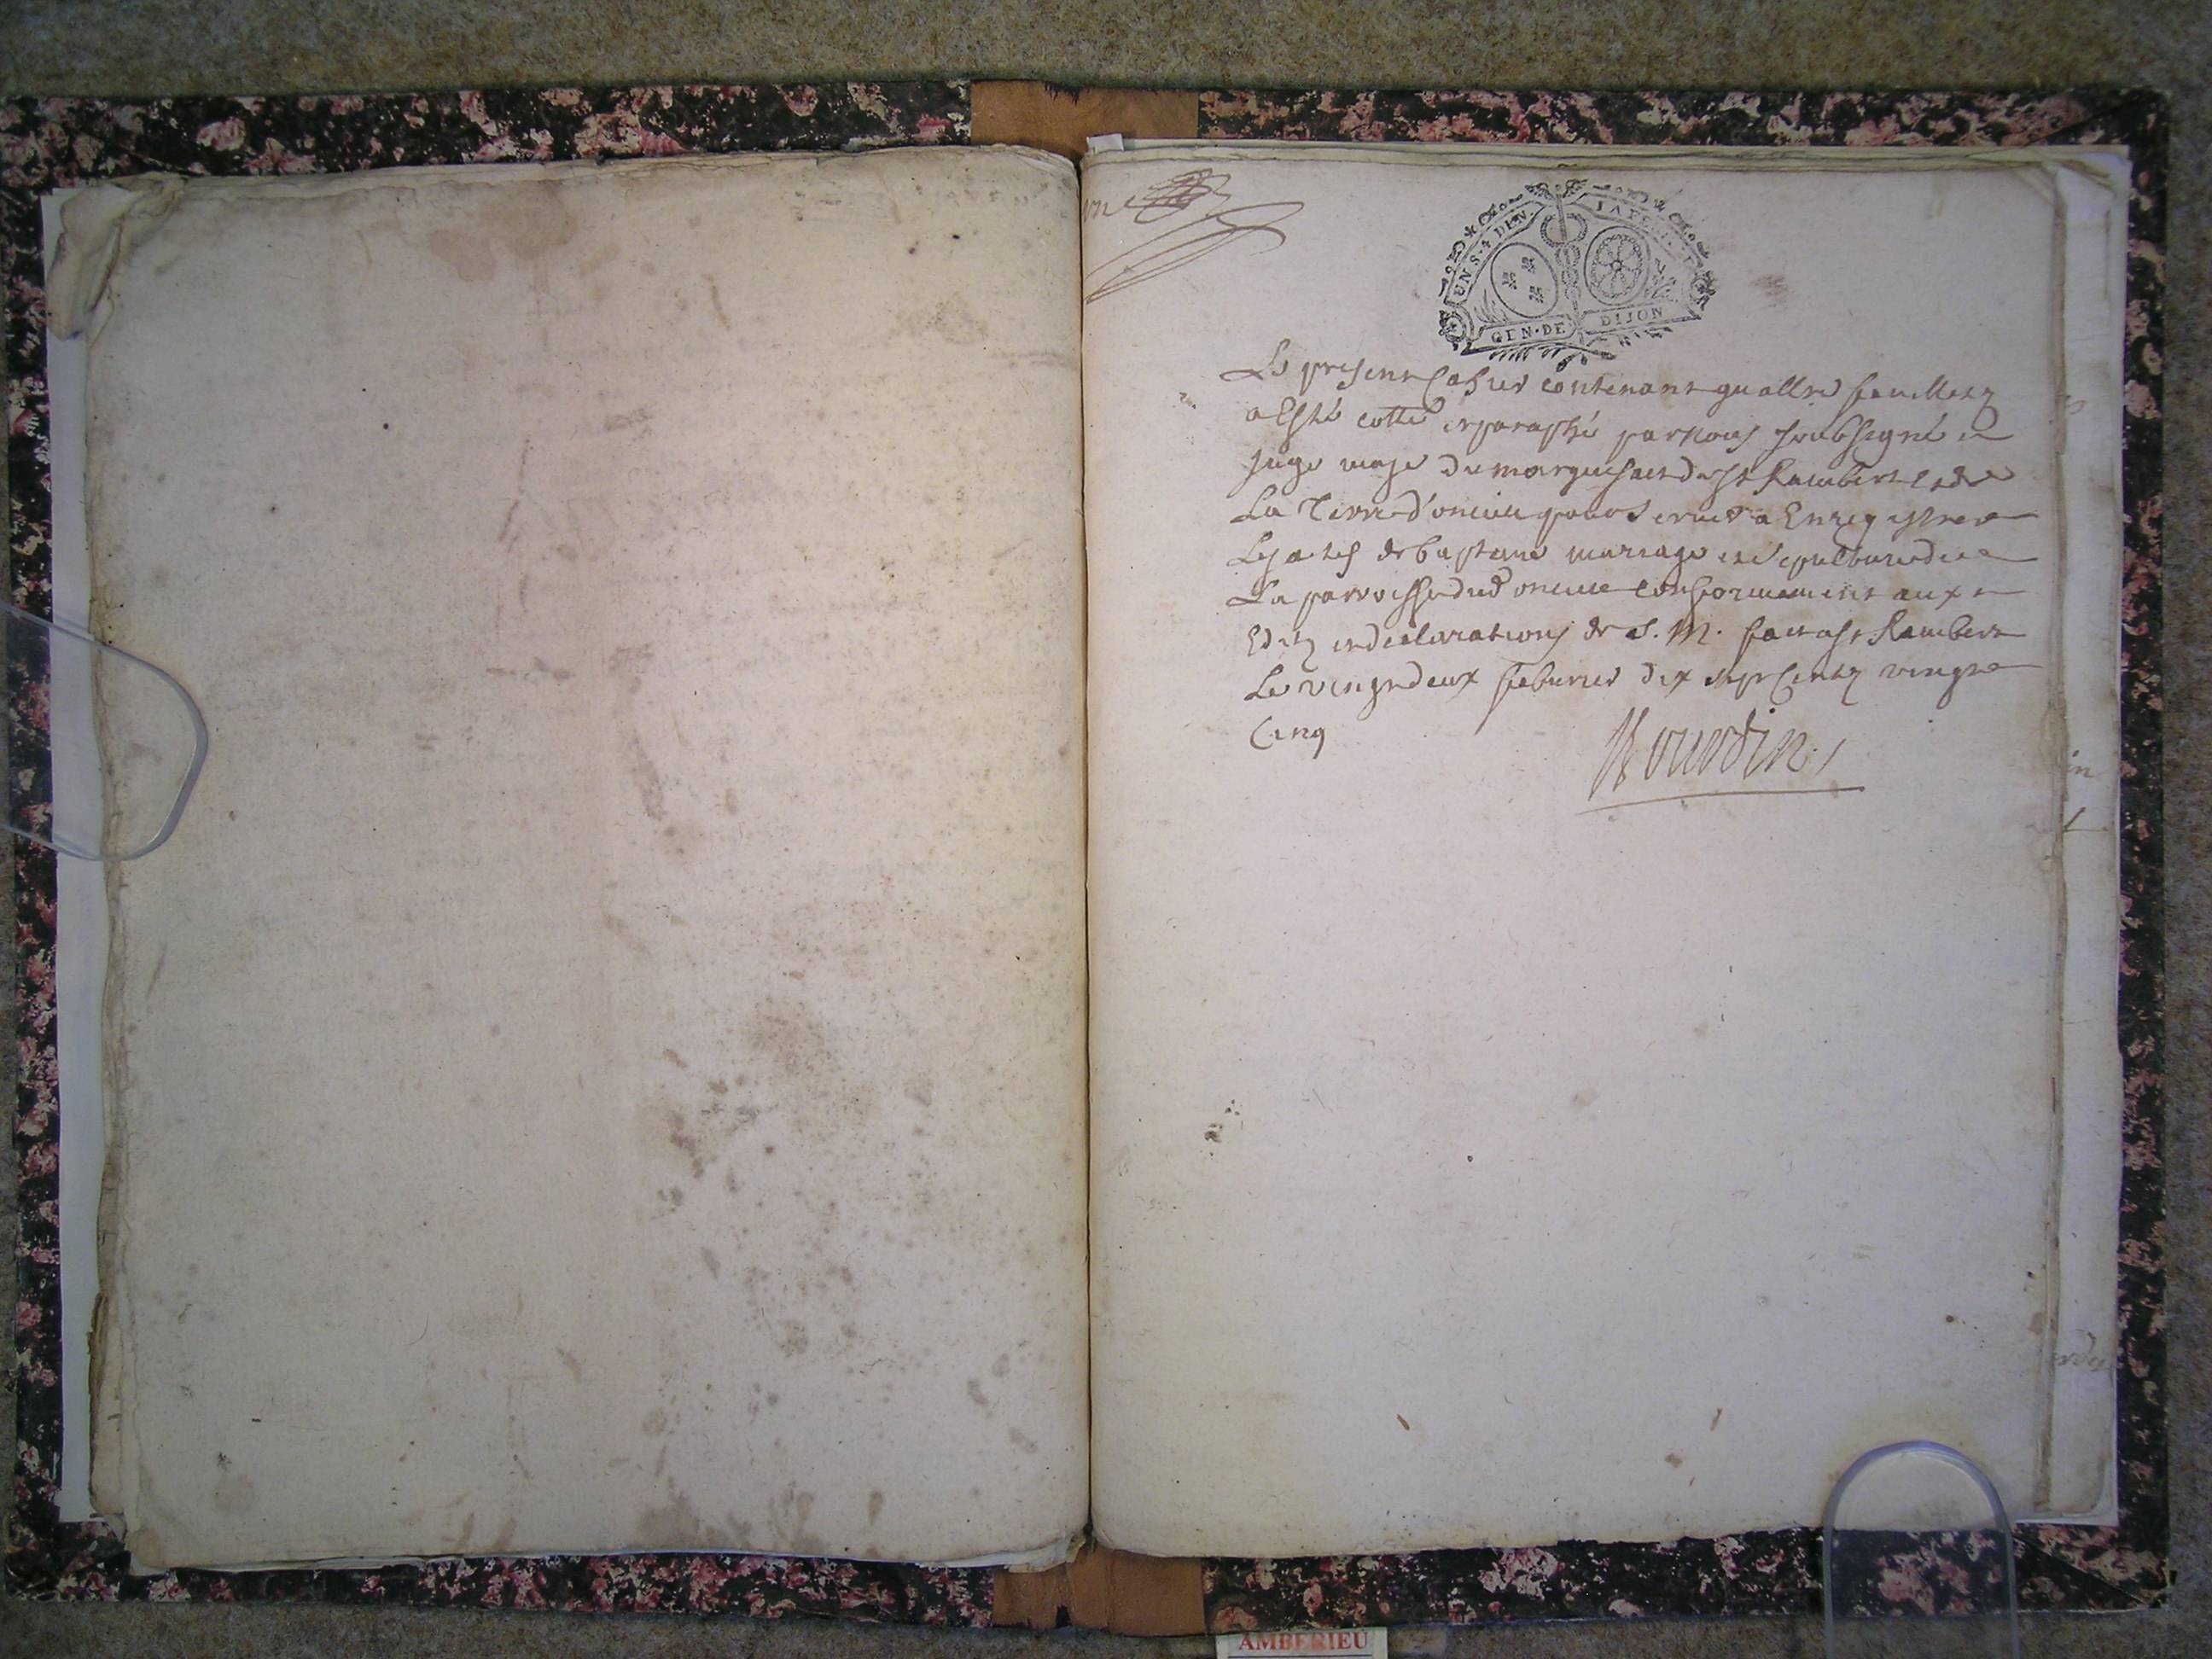 un
UN S. 4 DEN.
GEN · DE DIJON
Le present Cahier contenant quattre feuilletz
a Esté cotté et paraphé par Nous soubsigné
Juge maje du marquisat de St Rambert et de
La Terre d'oncieu pour servir a Enregistrer
Les actes de bapteme mariage et sepulture de
La parroisse dud oncieu Conformement aux
Editz et declarations de S. M. fait a St Rambert
Le vingt deux feburier dix sept Centz vingt
Cinq
in
AMBERIEU